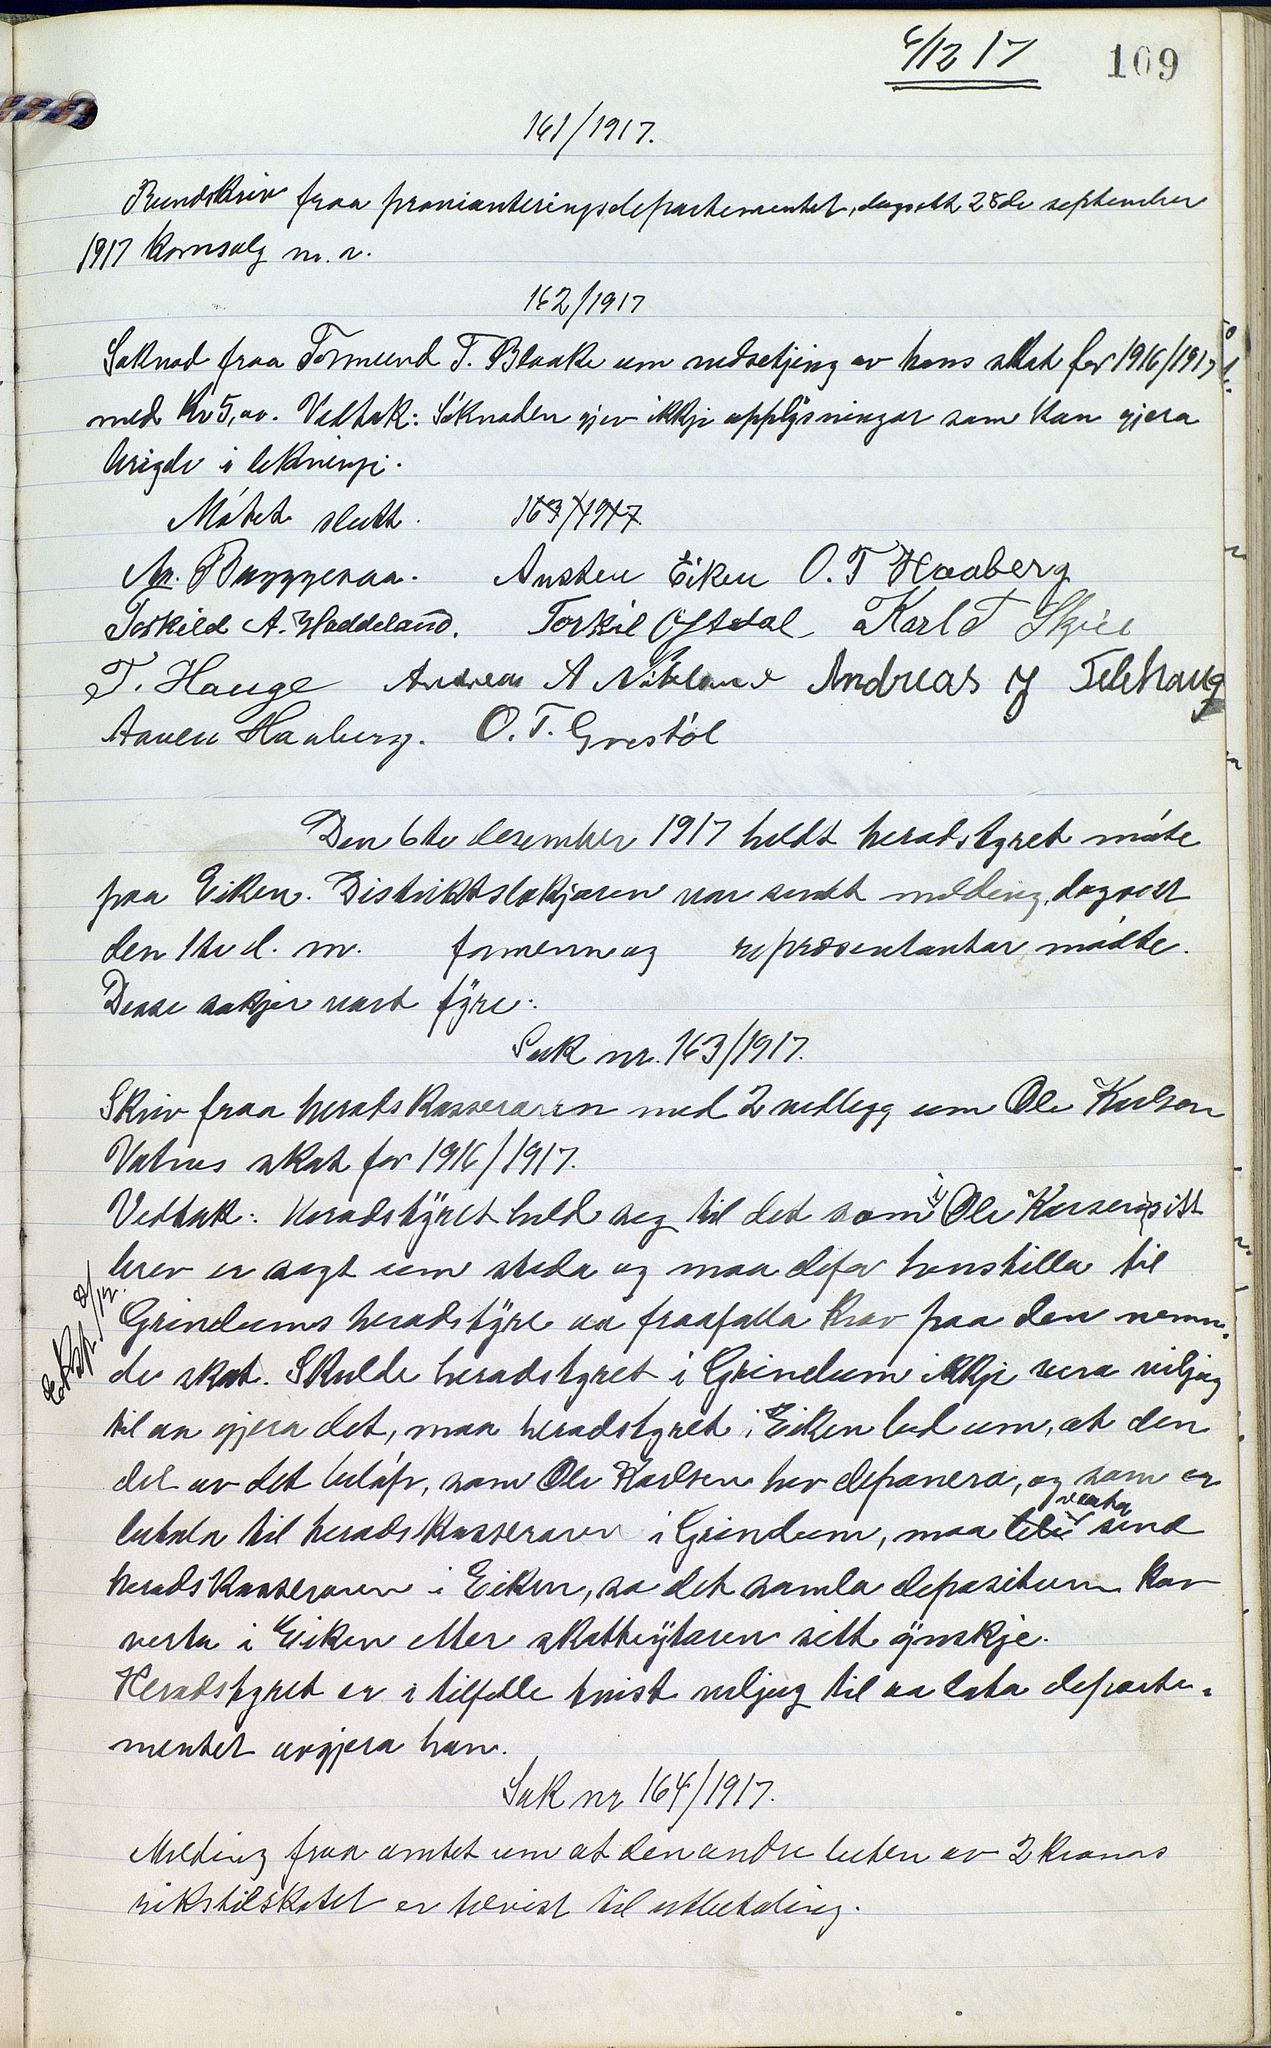 6/12 17
109
161/1917.
Rundskriv fraa provianteringsdepartementet, dagsett 28de september
1917 Kornsalg m. a.
162/1917
Søknad fraa Tormund T. Blaake um nedsetjing av hans skat for 1916/1917
med kr 5,00. Vedtak: Søknaden gjev ikkje upplysningar som kan gjera
brigde i likningi.
Møtet slutt. 163/1917
Ar. Byggjeraa. Austen Eiken O. T Haaberg
Torkild A. Haddeland. Torkil Oftedal Karl T Skjer
T. Hauge Andreas A Nibeland Andreas J Telhaug
Aanen Haaberg. O. T. Grostøl
Den 6te desember 1917 heldt heradstyret møte
paa Eiken. Distriktslækjaren var sendt melding, dagsett
den 1te d. m. formenn og repræsentantar møtte.
Desse sakjer vart fyre:
Sak nr. 163/1917.
Skriv fraa heradskasseraren med 2 vedlegg um Ole Karlsen
Vatnes skat for 1916/1917.
Vedtak: Heradstyret held seg til det som i Ole Karlsen sitt
brev er sagt um skeda og maa difor henstilla til
Grindums heradstyre aa fraafalla krav paa den nemn-
de skat. Skulde heradstyret i Grindum ikkje vera viljug
til aa gjera det, maa heradstyret i Eiken bed um, at den
del av det beløp, som Ole Karlsen hev deponera, og som er
betala til heradskasseraren i Grindum, maa verta send
heradskasseraren i Eiken, so det samla depositum kan
verta i Eiken etter skattleytaren sitt ynskje.
Heradstyret er i tilfelle tvist viljug til aa lata departe-
mentet avgjera han.
Sak nr 164/1917.
Melding fraa amtet um at den andre luten av 2 kroners
rikstilskotet er tilvist til utbetaling.